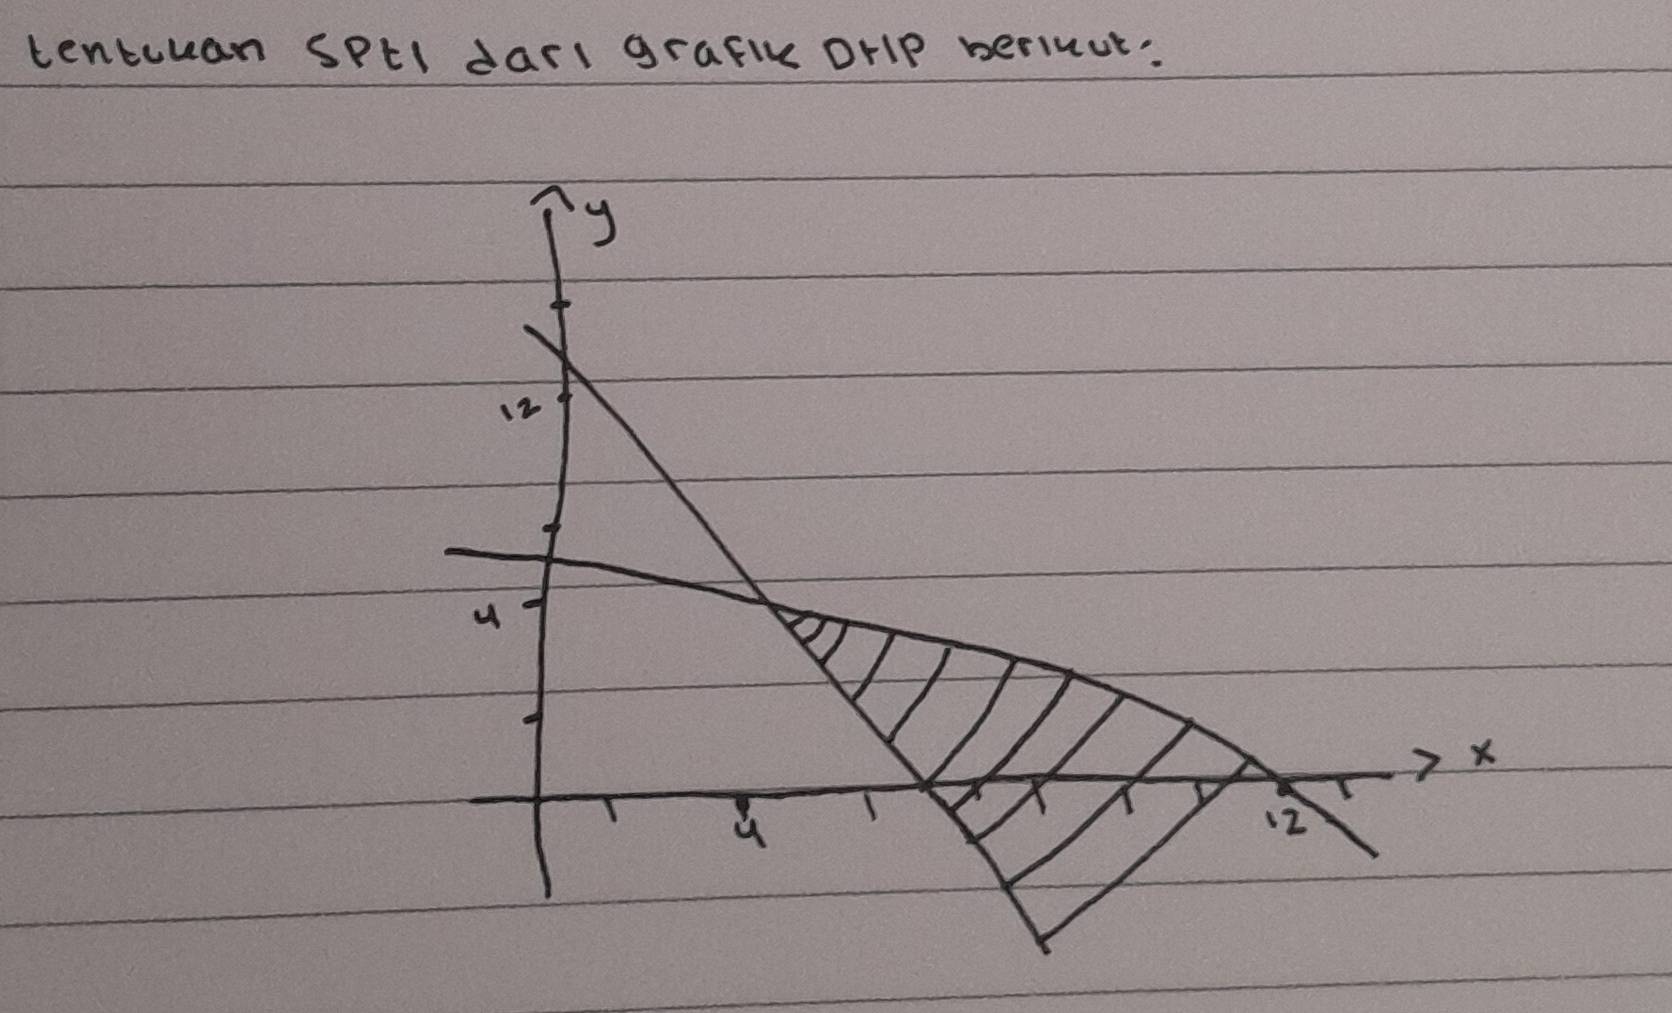 tentukan SPtl dari grafik DHP berikut:
y
12
4
x
4
12